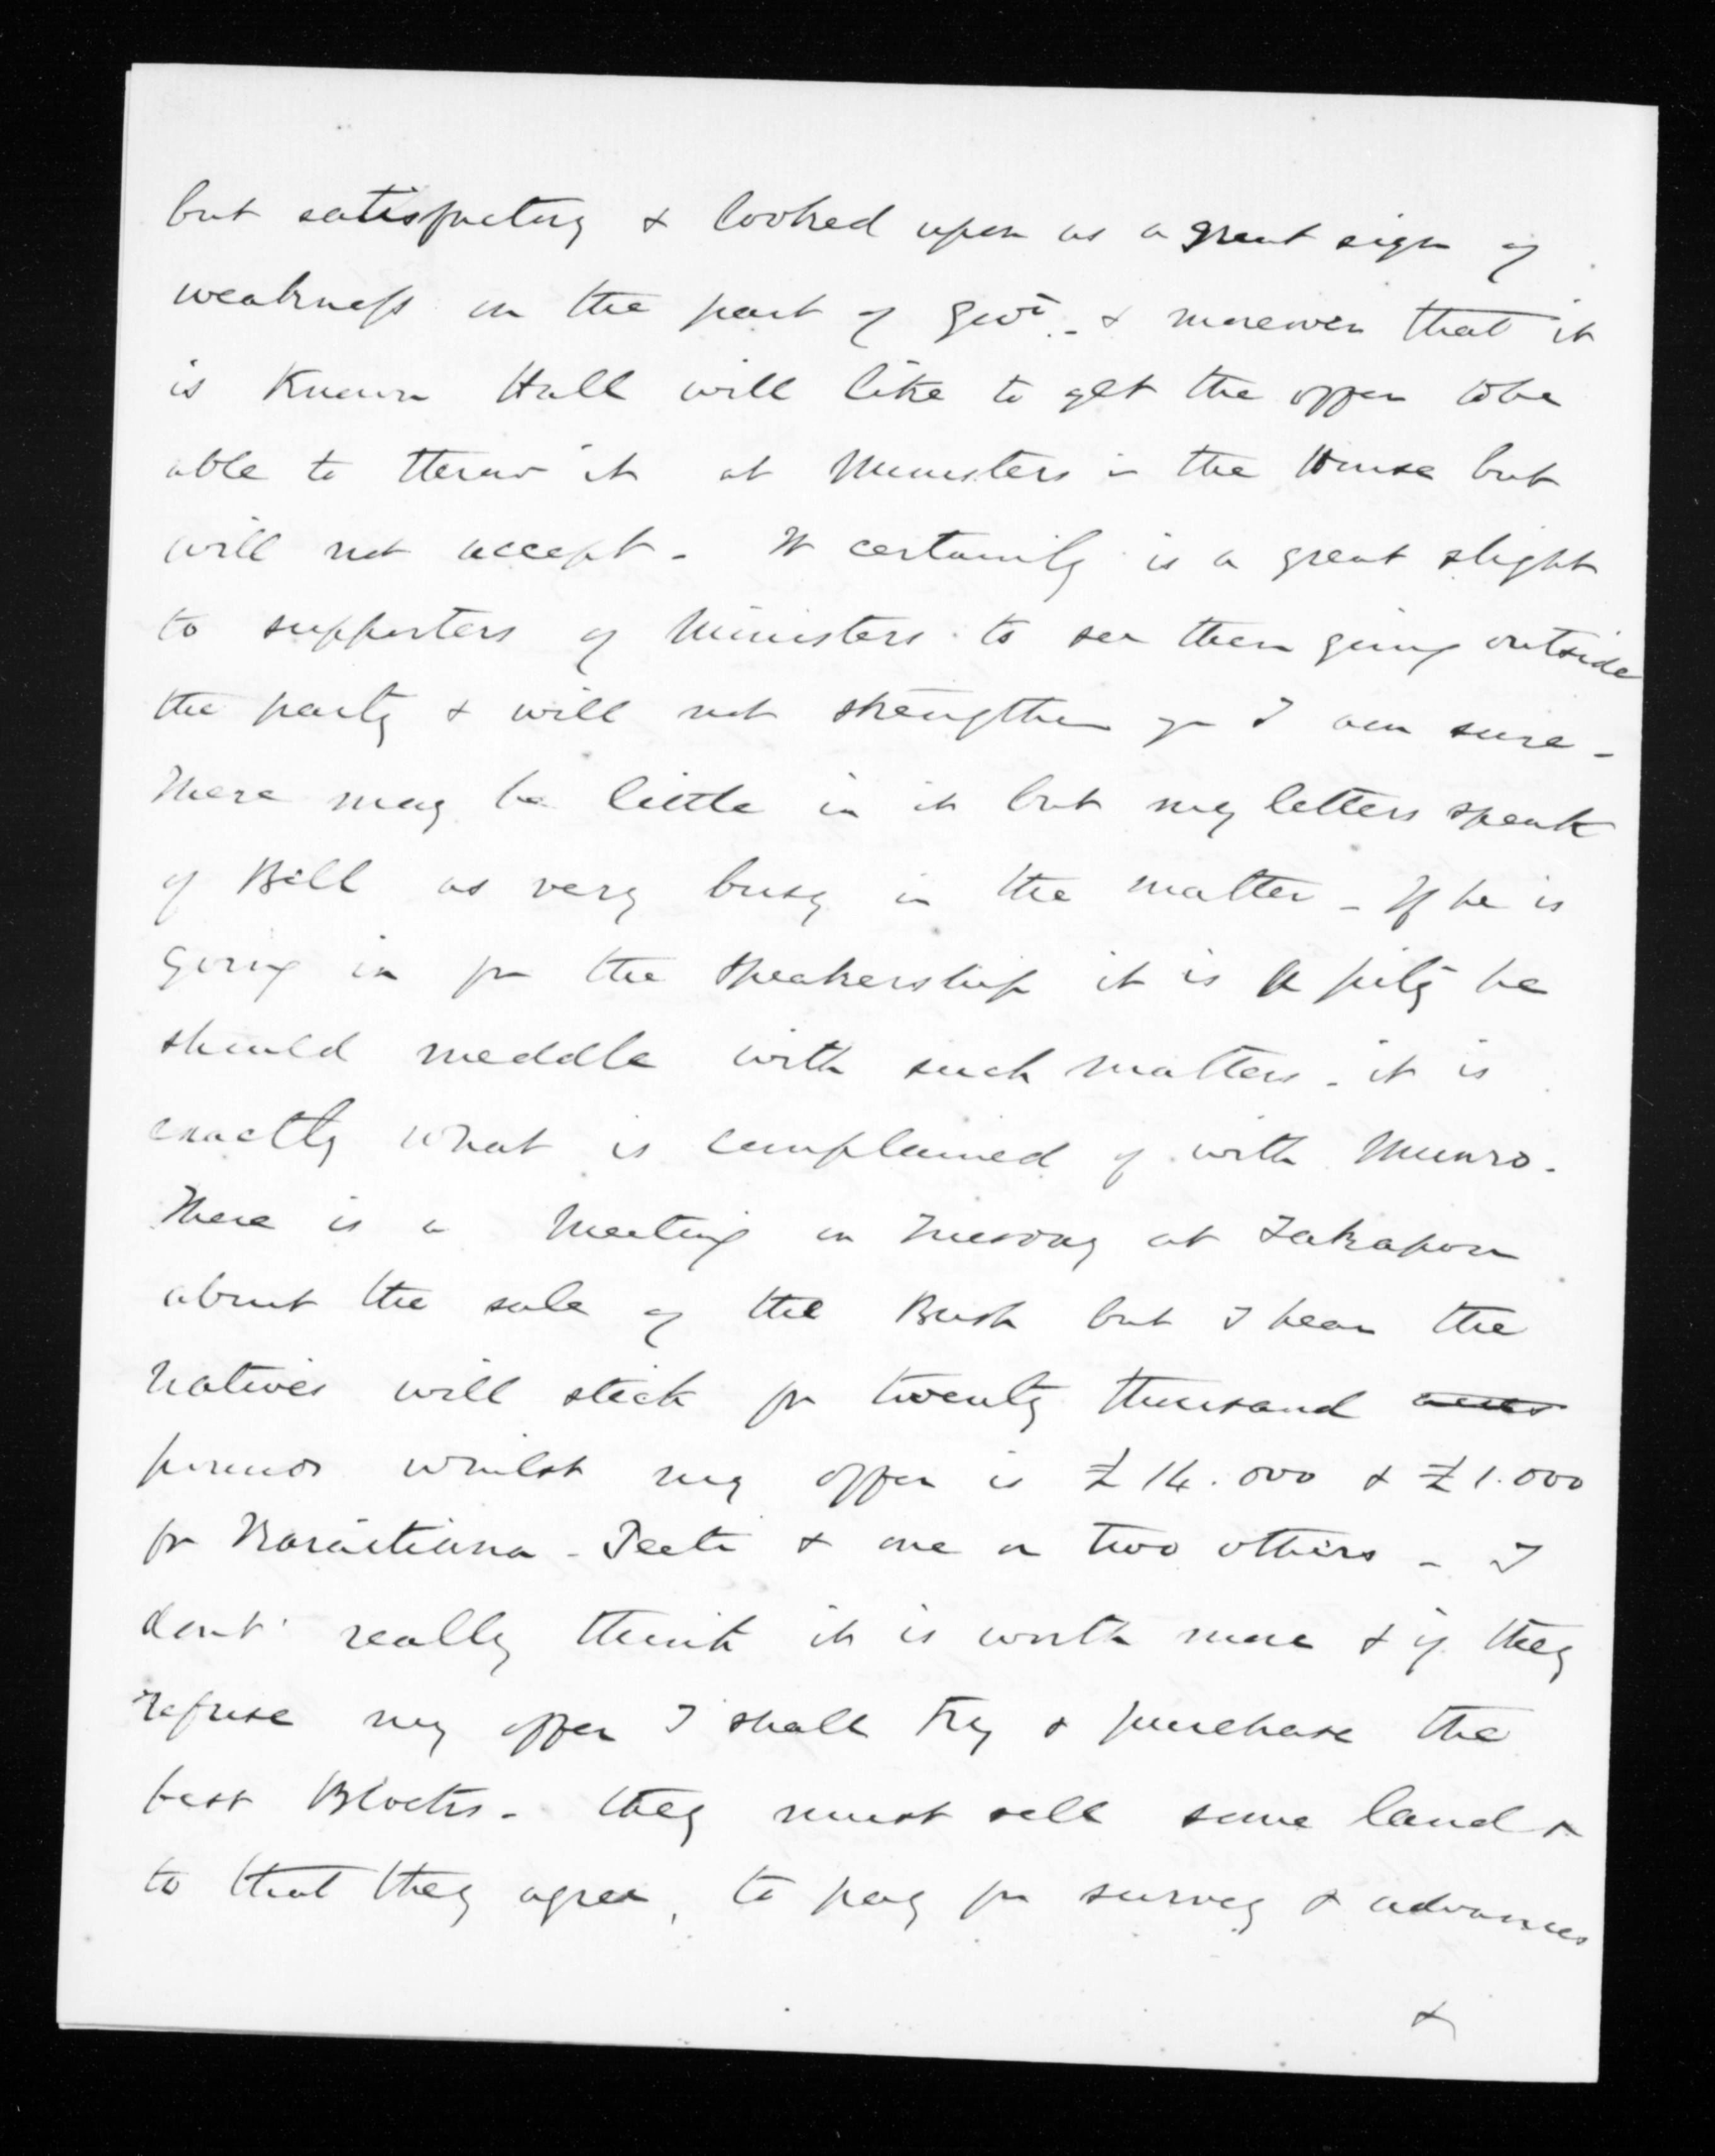 but satisfactory & looked upon as a great sign of
weakness on the part of Govt. - & moreover that it
is Known Hall will like to get the offer to be
able to throw it at Ministers in the House but
will not accept - It certainly is a great slight
to supporters of Ministers to see them going outside
the party & will not strengthen you I am sure -
There may be little in it but my letters speak
of Bell as very busy in the matter - If he is
going in for the Speakership it is a pity he
should meddle with such matters - it is
exactly what is complained of with Munro -
There is a Meeting on Tuesday at Takapau
about the sale of the Bush but I hear the
Natives will stick for twenty thousand acres
pounds whilst my offer is £14.000 & £1.000
for Karaitiana - & one or two others - I
dont really think it is worth more & if they
refuse my offer I shall try & purchase the
best Blocks - they must sell some land &
to that they agree, to pay for survey & advances
&